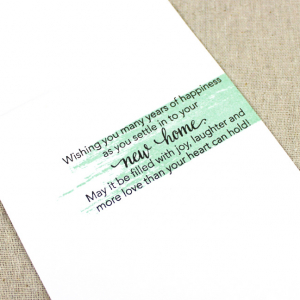 Wishing you many years of happiness
as you settle in to your
new home.
May it be filled with joy, laughter and
more love than your heart can hold!